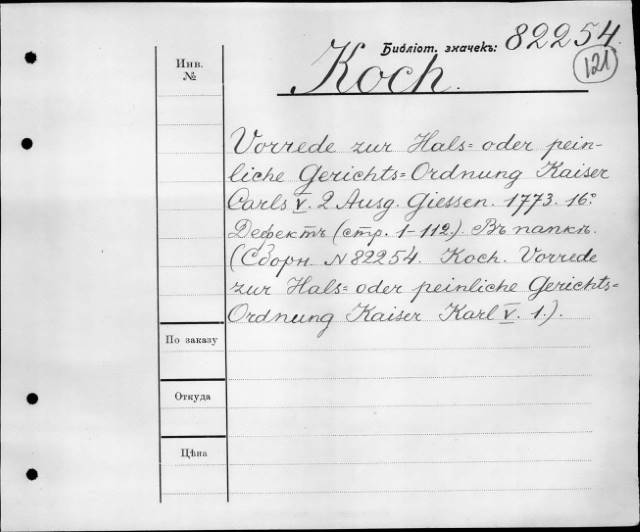 Библіот. значекъ: 82254.
121
Koch.
Инв.
№
Vorrede zur Hals= oder pein-
liche Gerichts=Ordnung Kaiser
Carls V. 2 Ausg. Giessen. 1773. 16°.
Дефектъ (стр. 1-112.). Въ папкѣ.
(Сборн. N 82254. Koch. Vorrede
zur Hals= oder peinliche Gerichts=
Ordnung Kaiser Karl V. 1.).
По заказу
Откуда
Цѣна